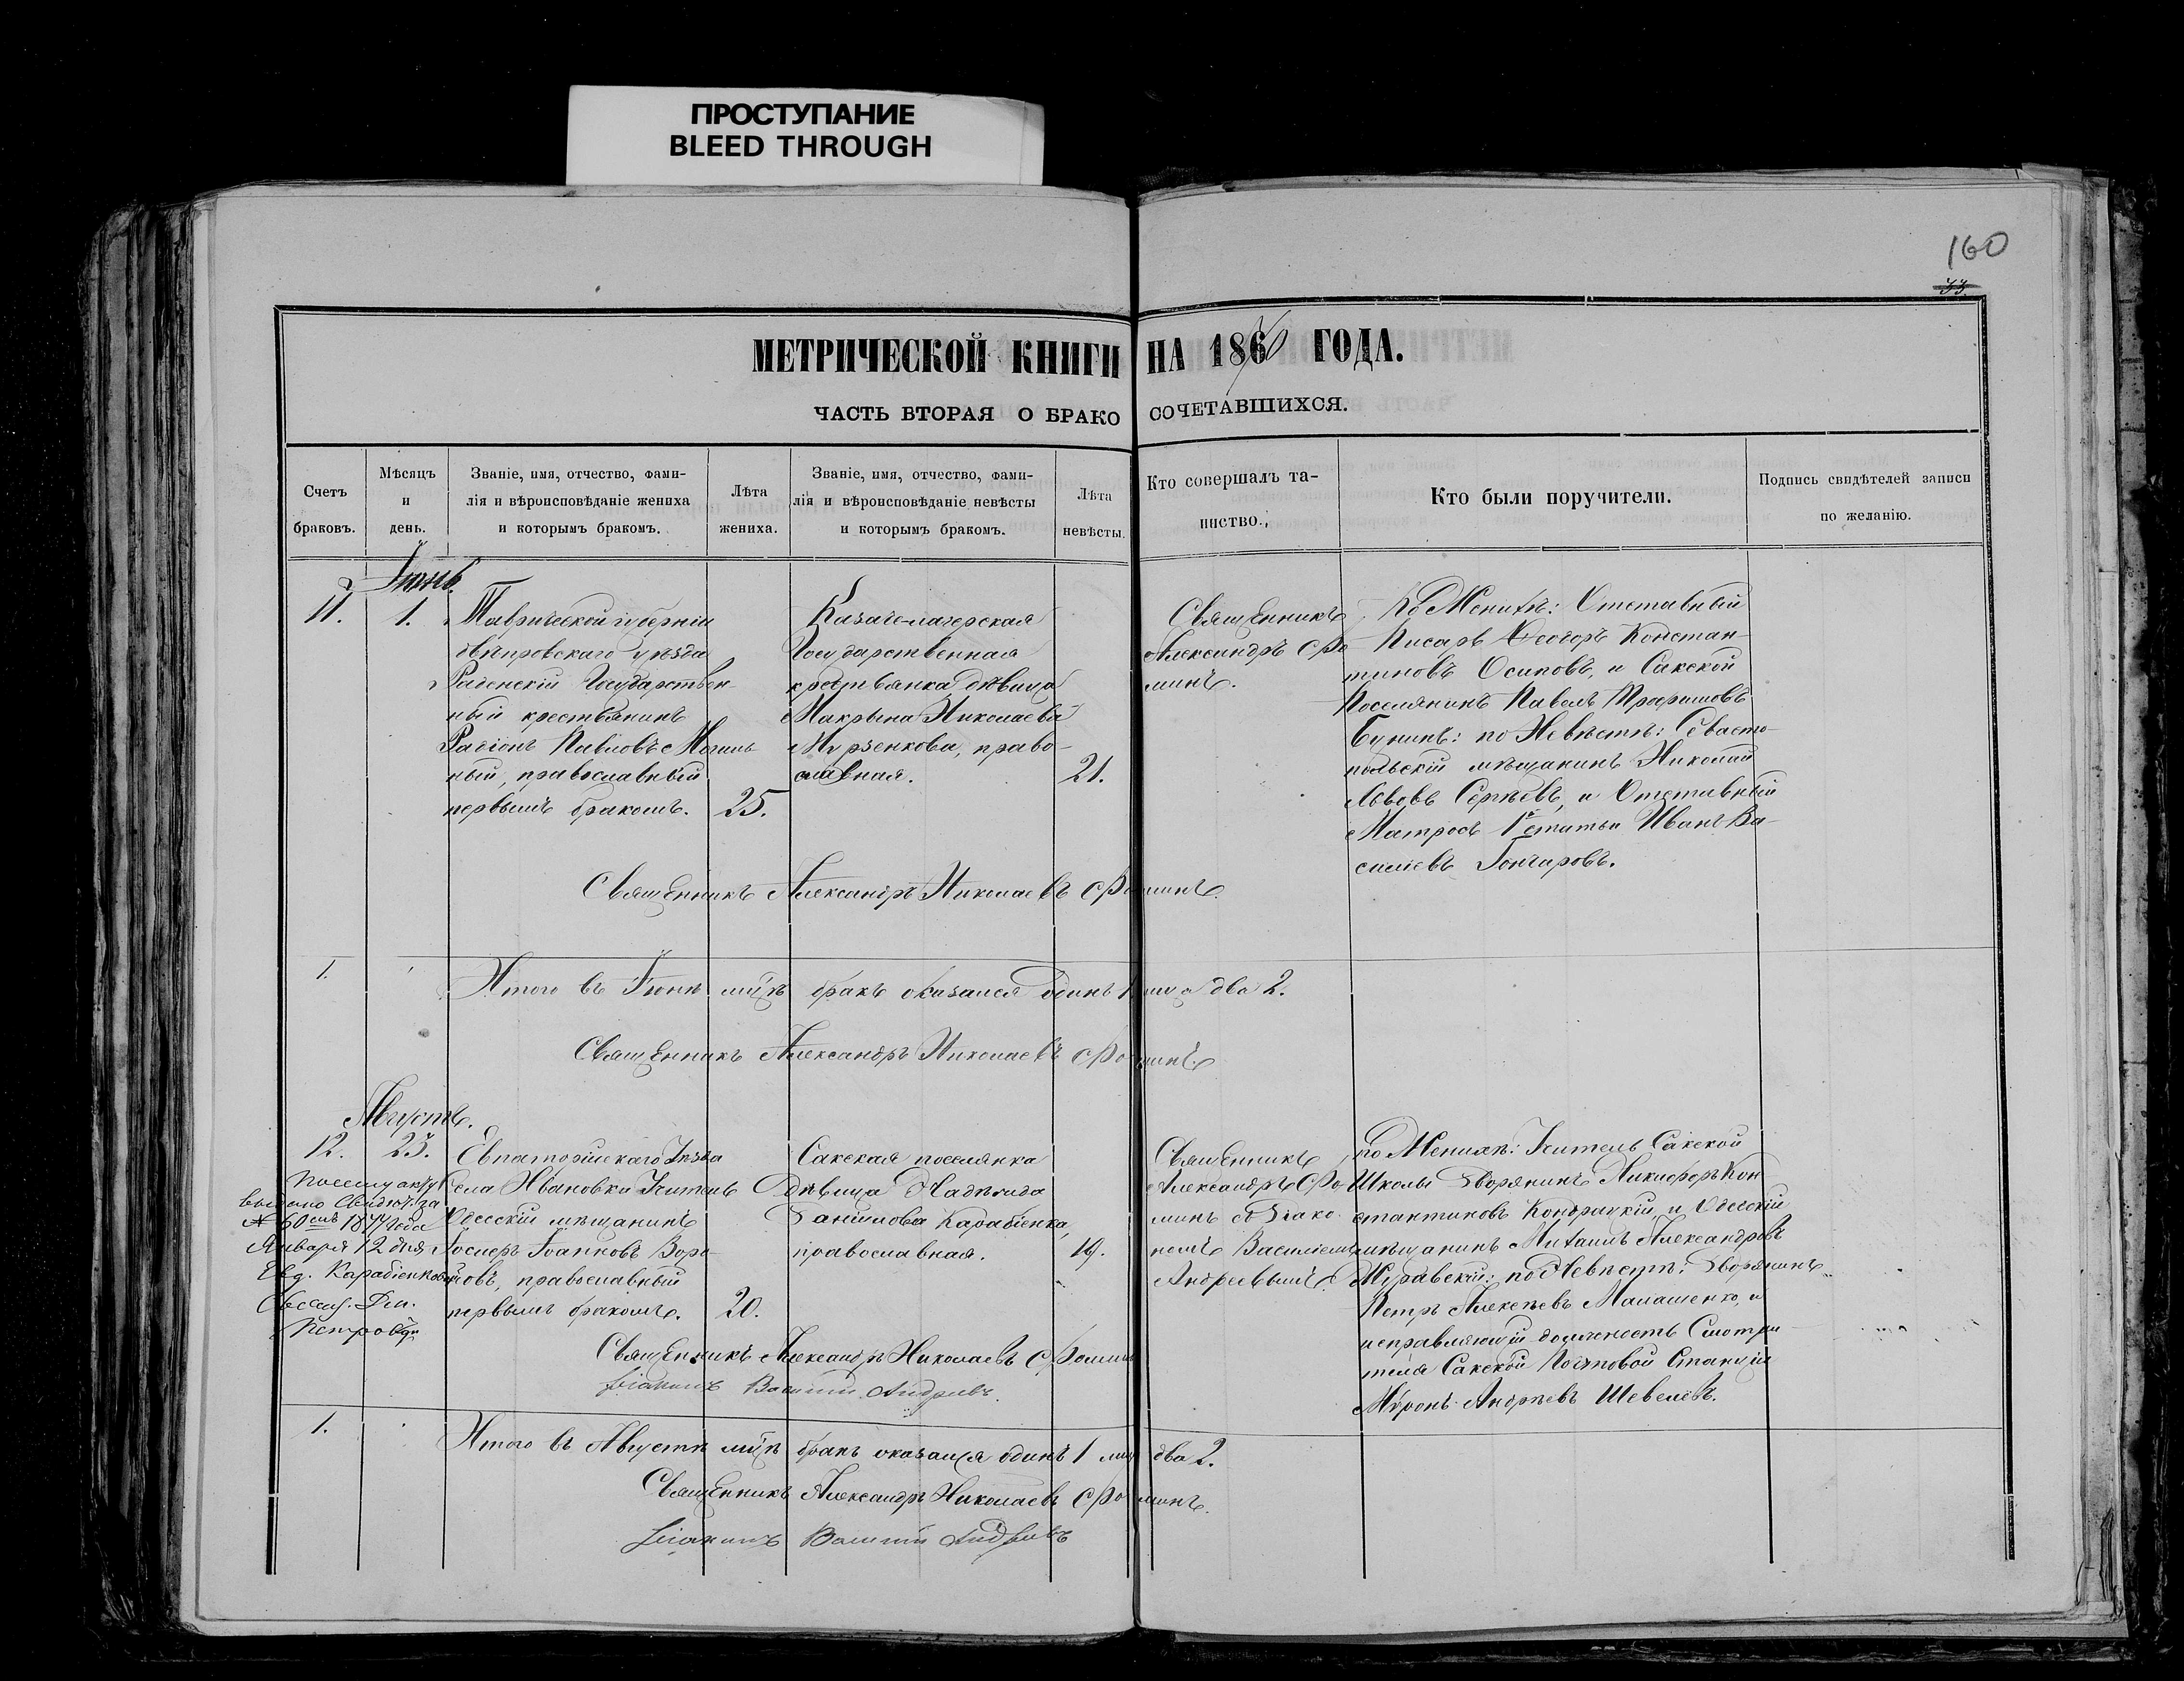 ПРОСТУПАНИЕ
BLEED THROUGH
160
33.
МЕТРИЧЕСКОЙ КНИГИ НА 1870 ГОДА.
ЧАСТЬ ВТОРАЯ О БРАКОСОЧЕТАВШИХСЯ.
Счетъ
браковъ.
Мѣсяцъ
и
день.
Званіе, имя, отчество, фами-
лія и вѣроисповѣданіе жениха
и которымъ бракомъ.
Лѣта
жениха.
Званіе, имя, отчество, фами-
лія и вѣроисповѣданіе невѣсты
и которымъ бракомъ.
Лѣта
невѣсты.
Кто совершалъ та-
инство.
Кто были поручители.
Подпись свидѣтелей записи
по желанію.
Іюнь.
11.
1.
Таврической губерніи
Днѣпровскаго уѣзда
Раденскій Государствен-
ный крестьянинъ
Павловъ
ный, православный
первымъ бракомъ.
25.
Казаче-лагерская
Государственная
крестьянка дѣвица
Макрына Николаева
Мурзенкова, право-
славная.
21.
Священникъ
Александръ Фо-
минъ.
По Женихѣ: Отставный
Писарь Ѳеодоръ Констан-
тиновъ Осиповъ, и Сакской
Поселянинъ Павелъ Трофимовъ
Бунинъ: по Невѣстѣ: Севасто-
польскій мѣщанинъ Николай
Львовъ Сергѣевъ, и Отставный
Матросъ 1й статьи Иванъ Ва-
силіевъ Гончаровъ.
Священникъ Александръ Николаевъ Фоминъ.
1.
Итого въ Іюнѣ мцѣ бракъ оказался одинъ 1 лица два 2.
Священникъ Александръ Николаевъ Фоминъ.
Августъ.
12.
23.
Евпаторійскаго Уѣзда
села Ивановки Учитель
Одесскій мѣщанинъ
Іоанновъ Воро-
новъ, православный
первымъ бракомъ.
20.
По сему акту
выдано Свидѣт. за
№ 60мъ 1877 года
Января 12 дня
Евд. Карабіенковой
Петров
Сакская поселянка
дѣвица Надѣжда
Данилова Карабіенка,
православная.
19.
Священникъ
Александръ Фо-
минъ съ Діако-
номъ Василіемъ
Андреевымъ.
по Женихѣ: Учитель Сакской
Школы Дворянинъ Никифоръ Кон-
стантиновъ Кондрацкій, и Одесскій
мѣщанинъ Михаилъ Александровъ
Журавскій: по Невѣстѣ: Дворянинъ
Петръ Алексѣевъ Малашенко, и
исправляющій должность Смотри-
теля Сакской Почтовой Станціи
Миронъ Андреевъ Шевелевъ.
Священникъ Александръ Николаевъ Фоминъ
Діаконъ Василій Андреевъ.
1.
Итого въ Августѣ мцѣ бракъ оказался одинъ 1 лица два 2.
Священникъ Александръ Николаевъ Фоминъ.
Діаконъ Василій Андреевъ